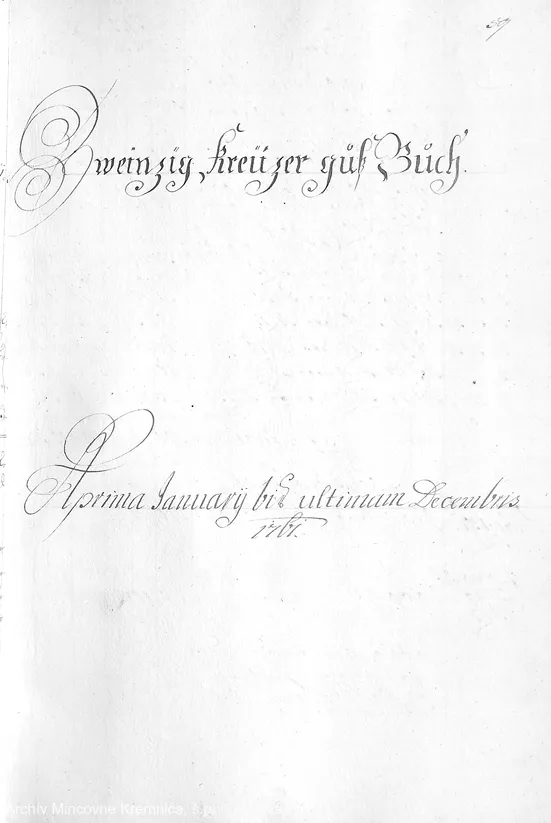 Zweinzig Kreüzer güß Buch.
A prima Januarÿ biß ultimam Decembris.
1761.
Archiv Mincovne Kremnica,